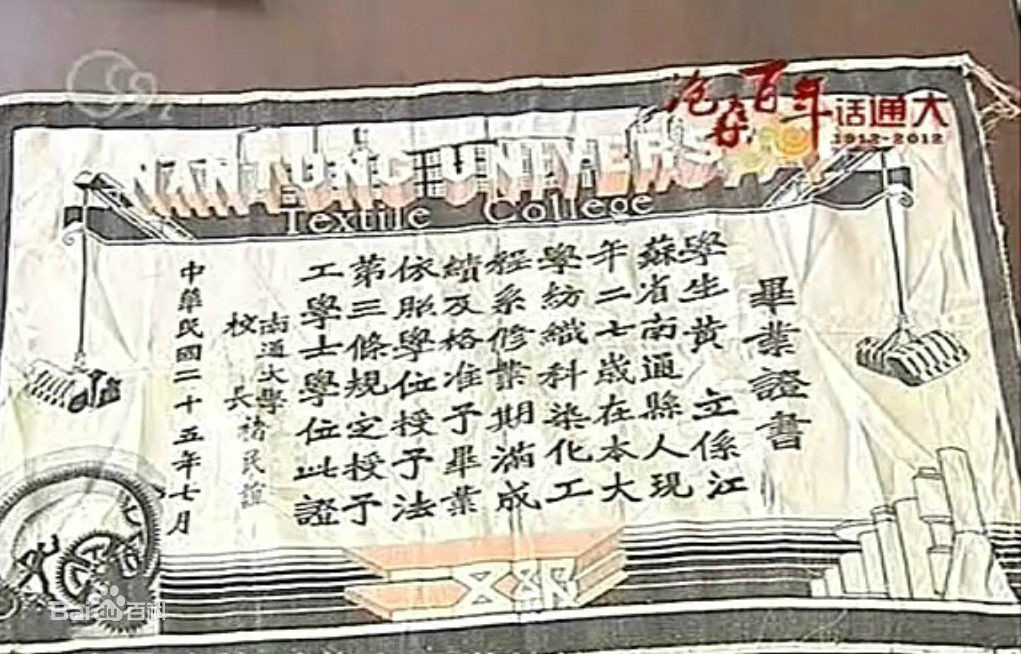 沧桑百年
话通大
1912-2012
NANTUNG UNIVERS
Textile College
畢業證書
學生黃立係江
蘇省南通縣人現
年二七歲在本大
學紡織科染化工
程系修業期滿成
績及格准予畢業
依照學位授予法
第三條規定授予
工學士學位此證
南通大學
校長褚民誼
中華民國二十五年七月
Baidu百科